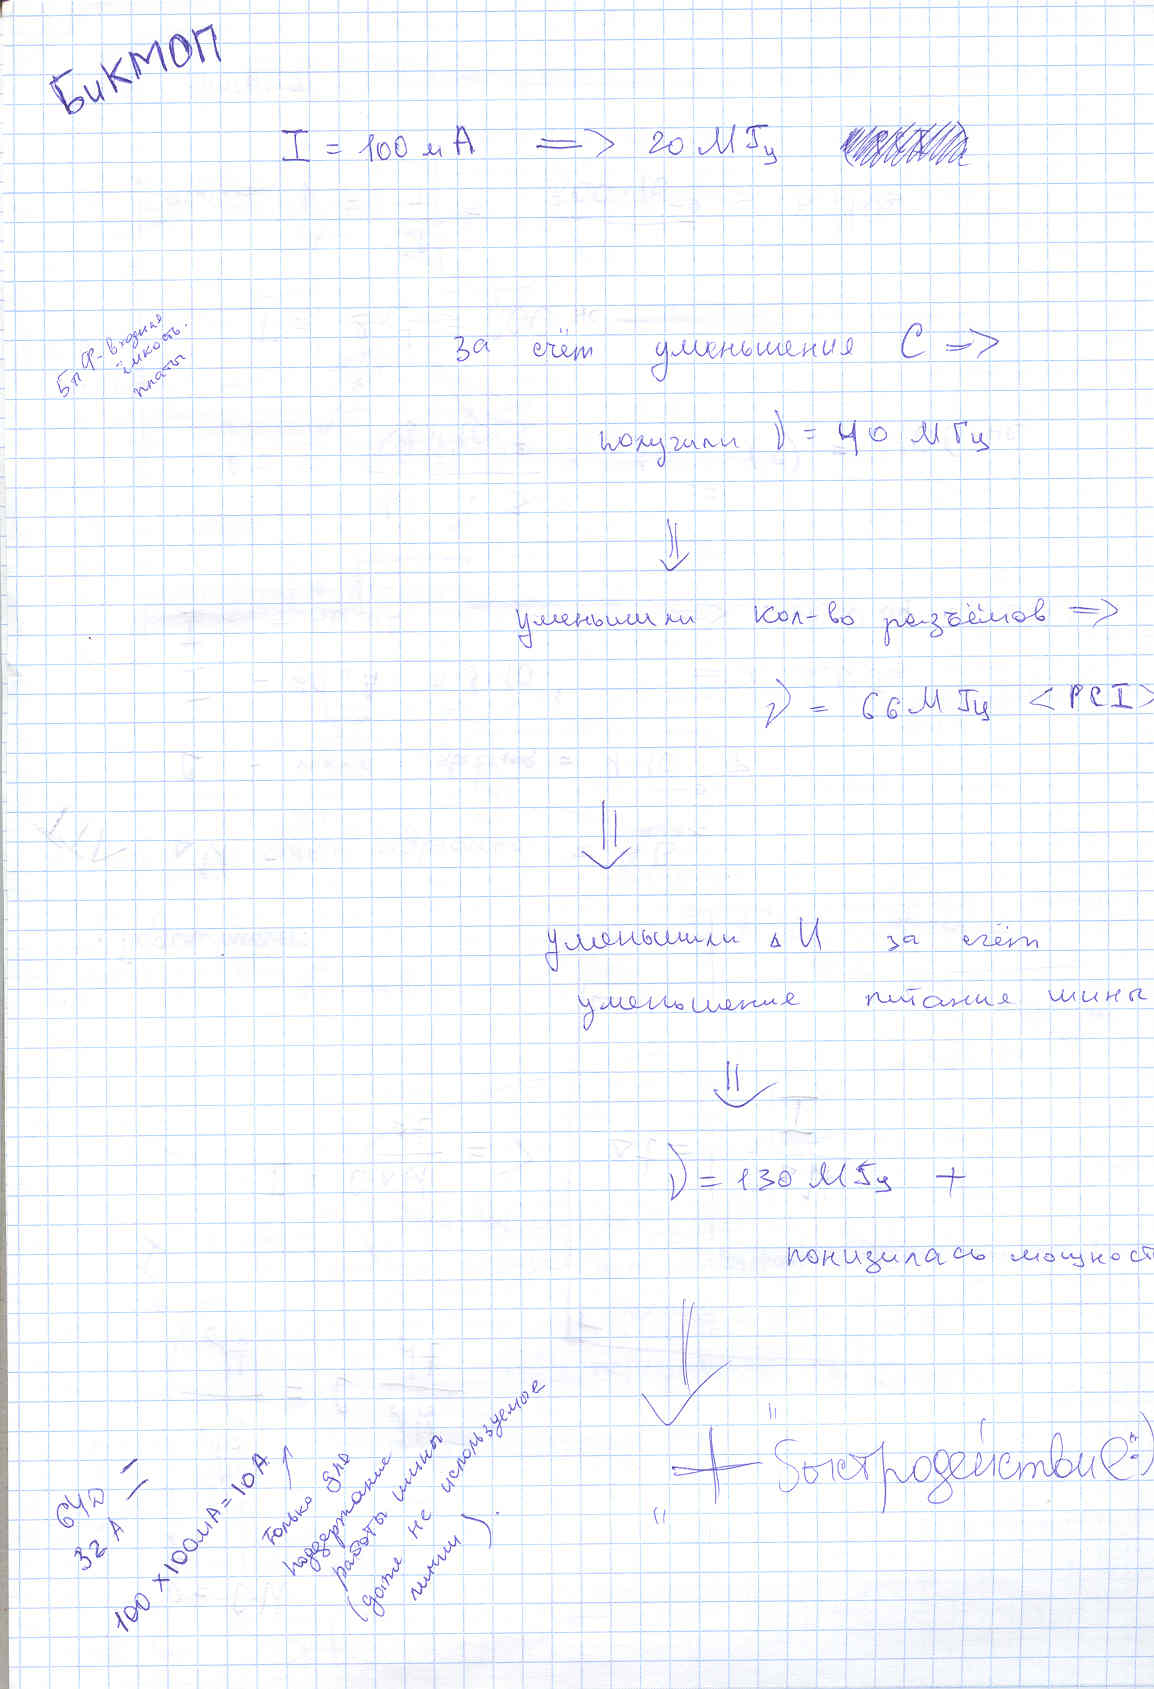 БиКМОП
I = 100 мА => 20 МГц
5пФ - входная
ёмкость
платы
За счёт уменьшения С =>
получили ν = 40 МГц
уменьшили кол-во разъёмов =>
ν = 66 МГц <PCI>
уменьшили ΔU за счёт
уменьшение питание шины
ν = 130 МГц +
понизилась мощност
+ быстродействие
64D
32A
100 x 100мА = 10А
только для
поддержание
работы шины
(даже не используемые
линии).